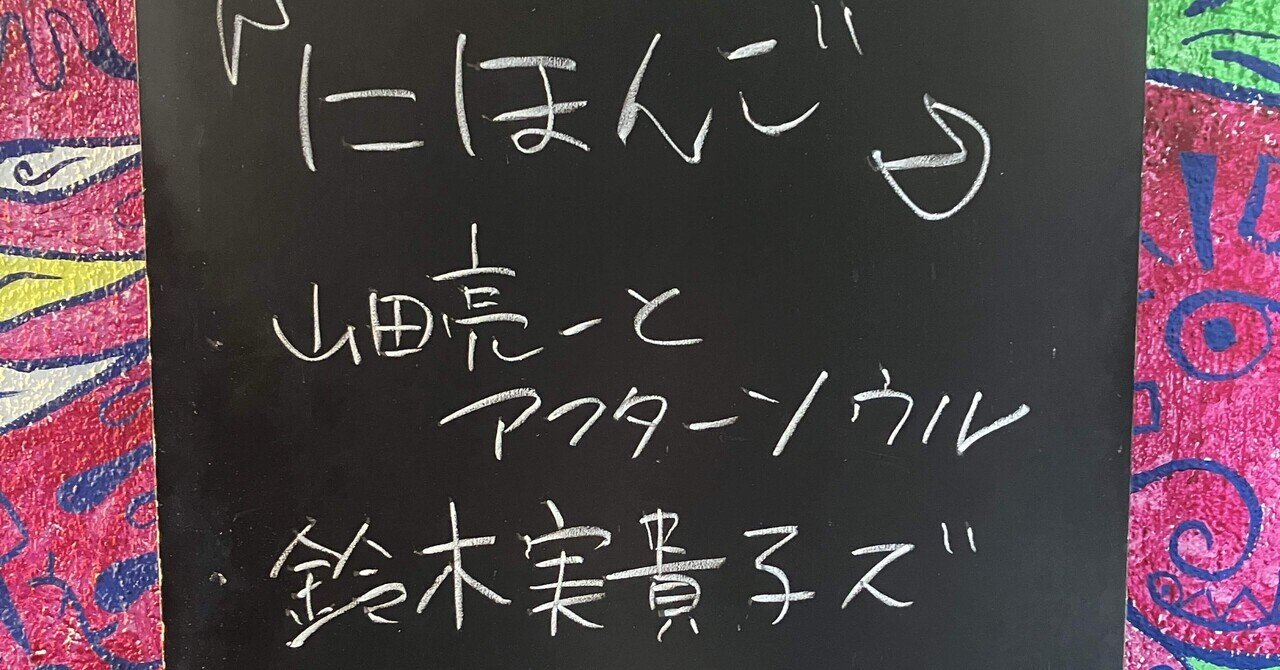 『にほんご』
山田亮一と
アフターソウル
鈴木実貴子ズ